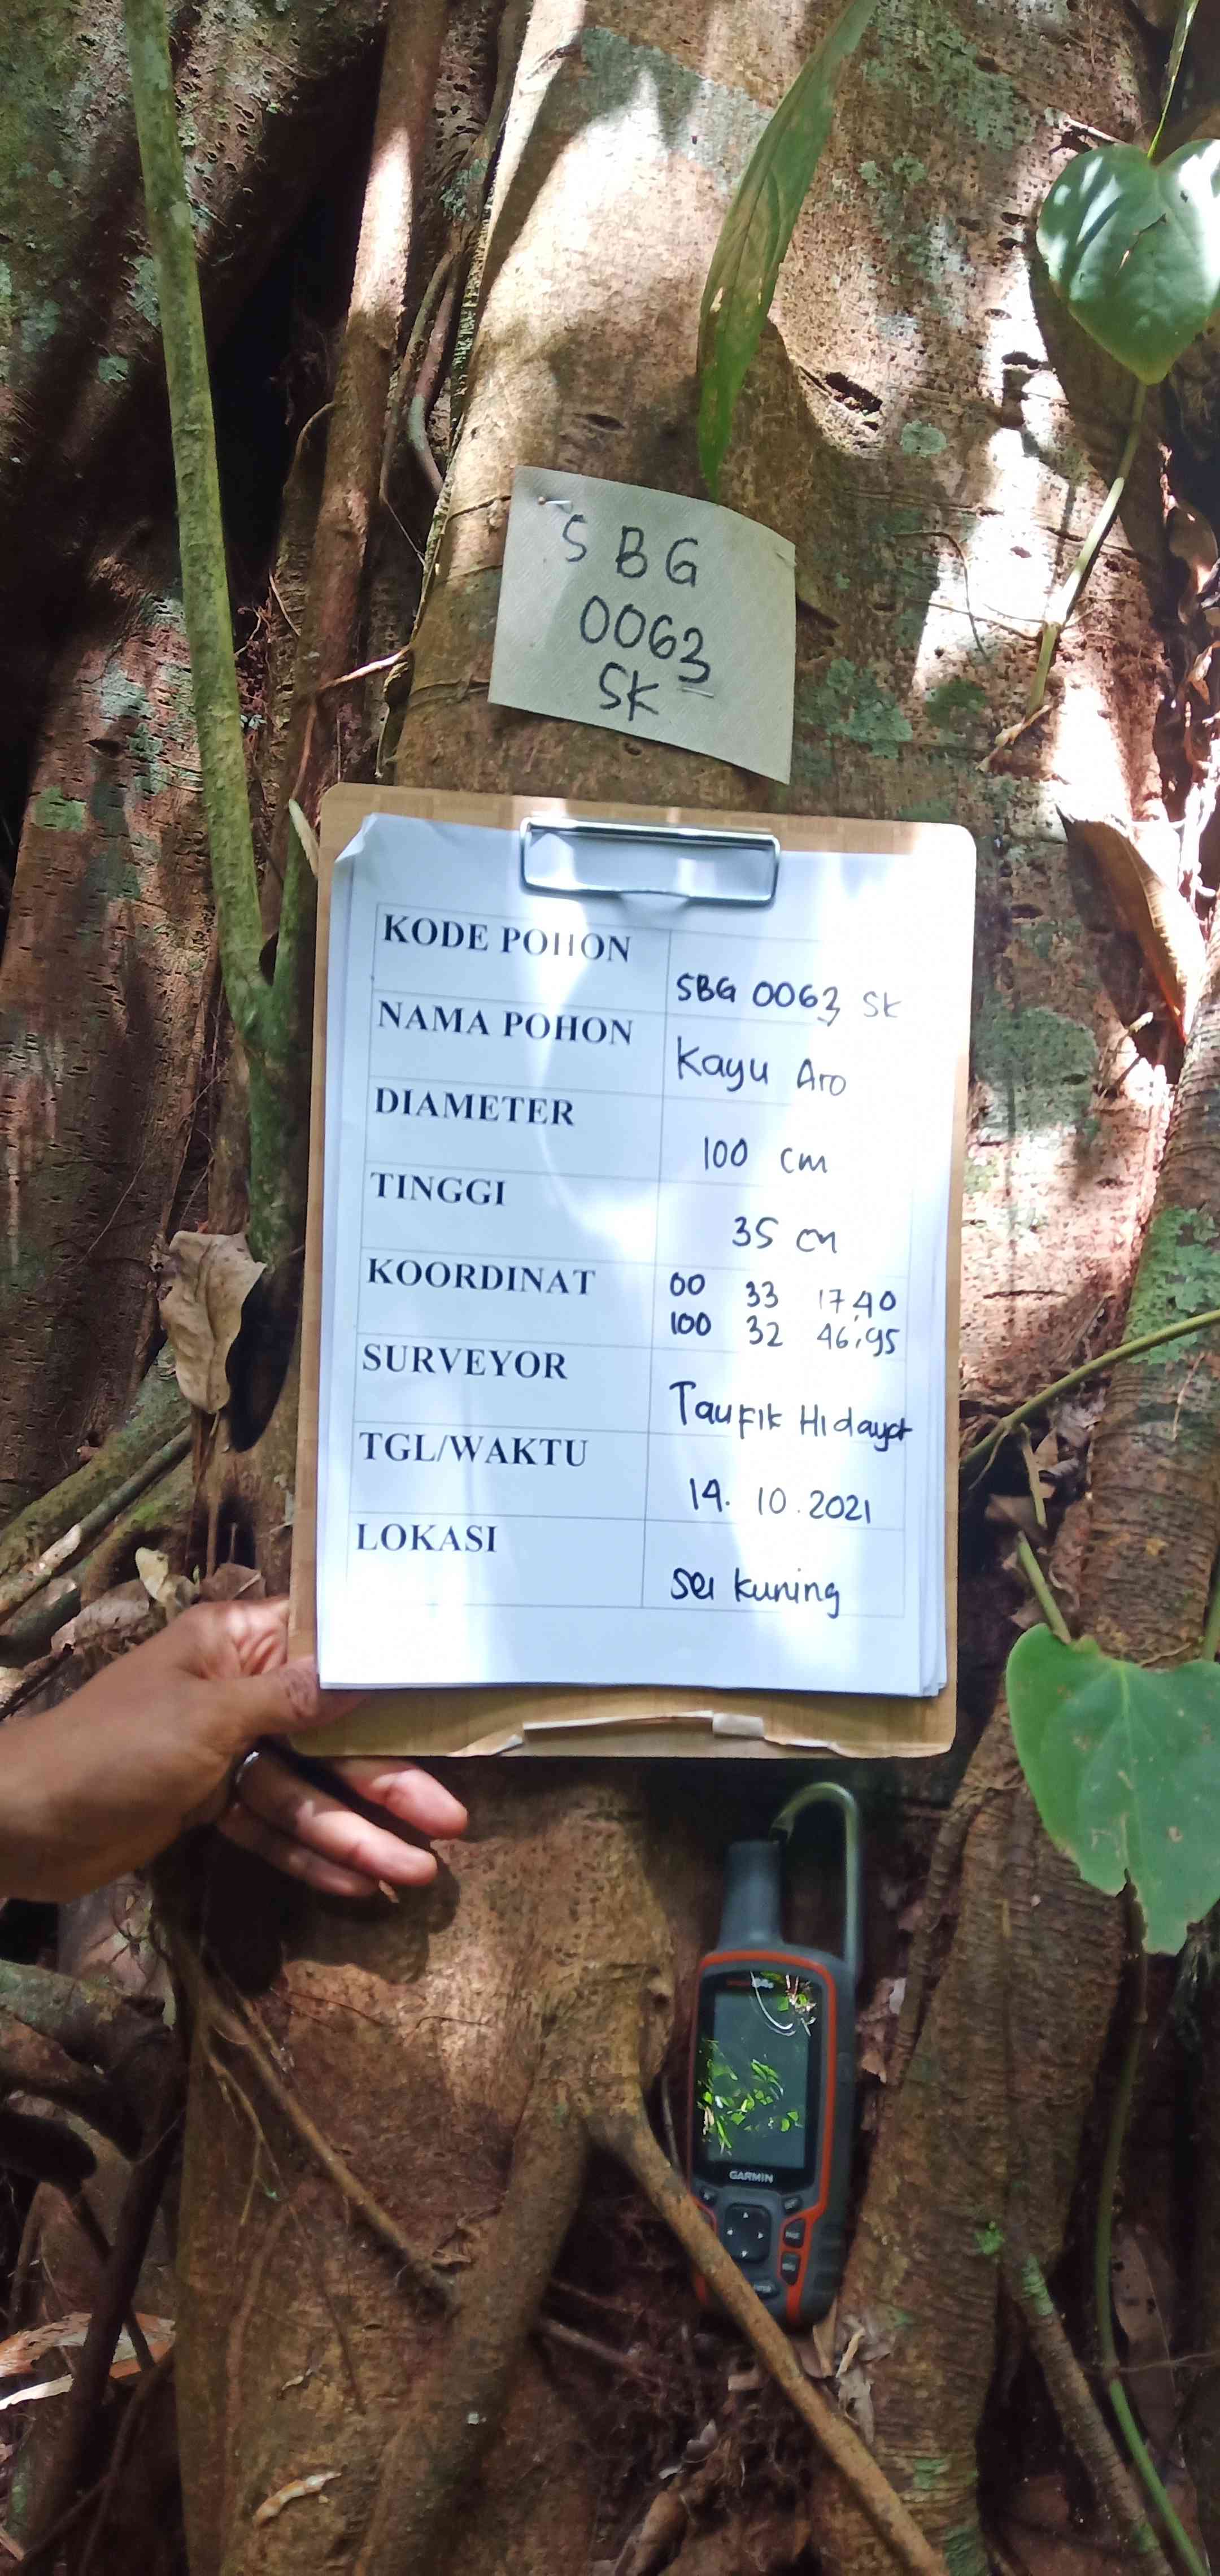 SBG
0063
SK
KODE POHON SBG 0063 SK
NAMA POHON Kayu Aro
DIAMETER 100 cm
TINGGI 35 cm
KOORDINAT 00 33 17,40
100 32 46,95
SURVEYOR Taufik Hidayat
TGL/WAKTU 14. 10. 2021
LOKASI Sei Kuning
GARMIN